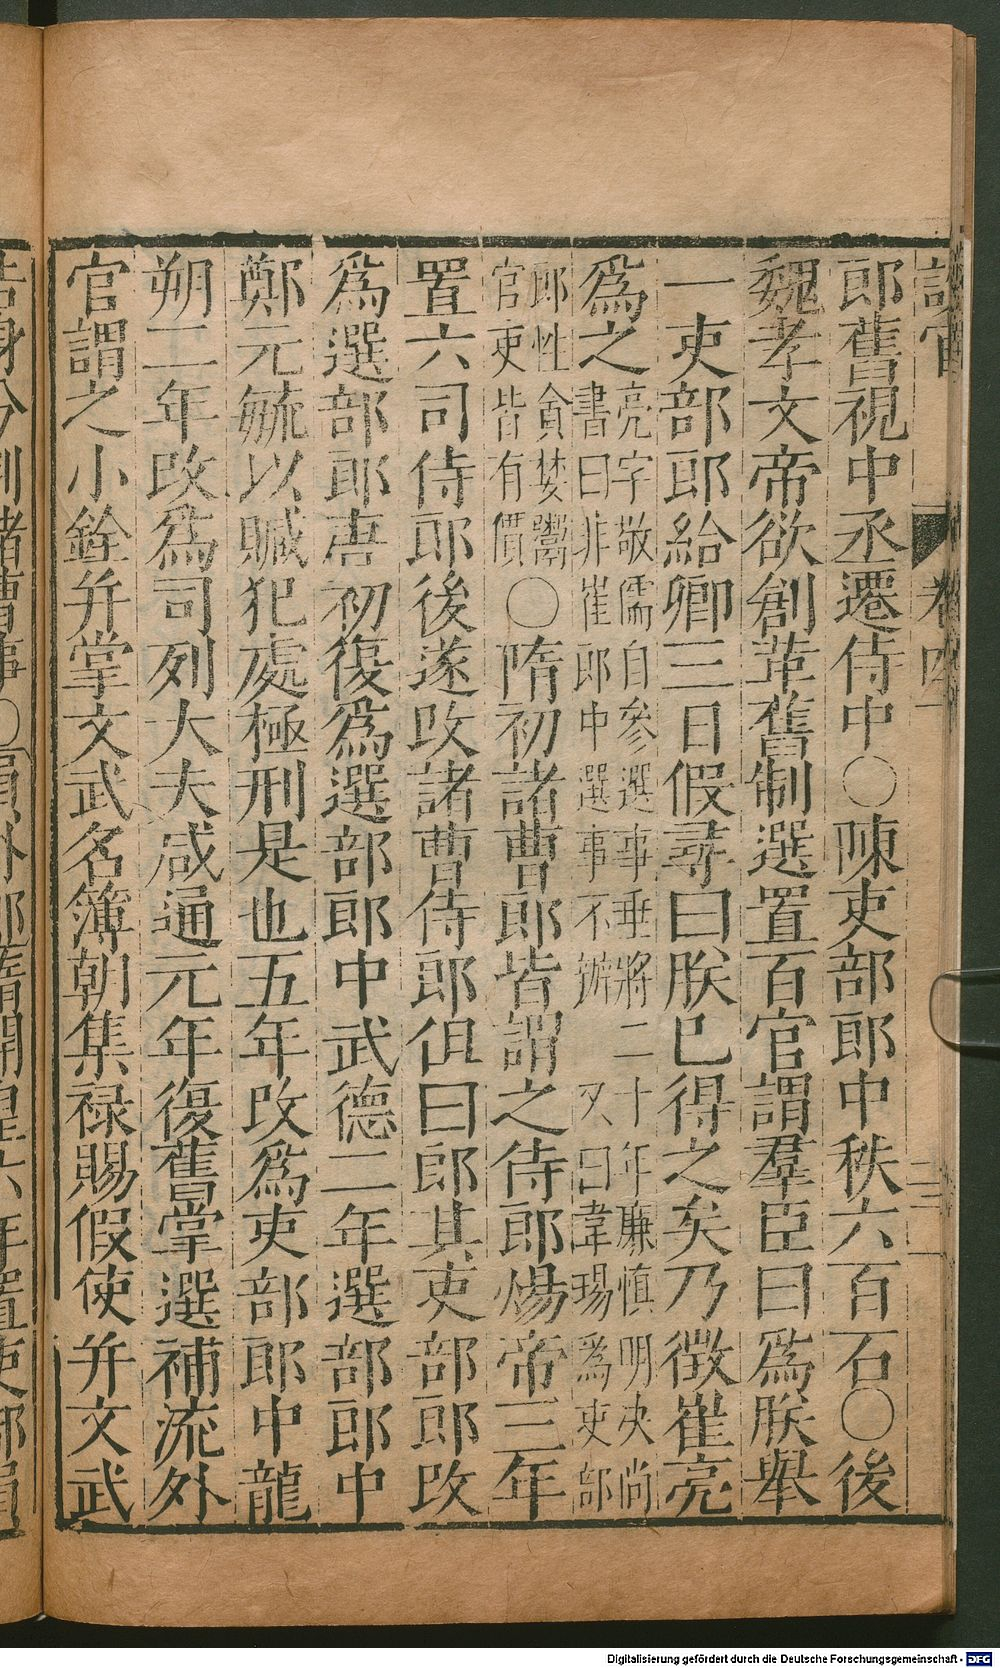 卷四
郎舊視中丞遷侍中○陳吏部郎中秩六百石○後
魏孝文帝欲創革舊制選置百官謂羣臣曰爲朕舉
一吏部郎給卿三日假尋曰朕已得之矣乃徵崔亮
爲之亮字敬儒自參選事垂將二十年廉慎明决尚
書曰非崔郎中選事不辦 又曰韋瑒爲吏部
郎性貪婪鬻
官吏皆有價○隋初諸曹郎皆謂之侍郎煬帝三年
置六司侍郎後遂改諸曹侍郎但曰郎其吏部郎改
爲選部郎唐初復爲選部郎中武德二年選部郎中
鄭元毓以贓犯處極刑是也五年改爲吏部郎中龍
朔二年改爲司列大夫咸通元年復舊掌選補流外
官謂之小銓并掌文武名簿朝集禄賜假使并文武
Digitalisierung gefördert durch die Deutsche Forschungsgemeinschaft - DFG